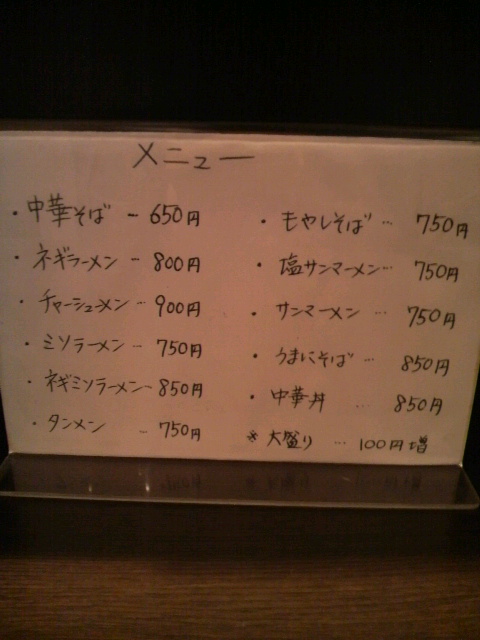 メニュー
・中華そば － 650円
・ネギラーメン … 800円
・チャーシューメン … 900円
・ミソラーメン … 750円
・ネギミソラーメン － 850円
・タンメン － 750円
・もやしそば … 750円
・塩サンマーメン … 750円
・サンマーメン … 750円
・うまにそば … 850円
・中華丼 … 850円
※大盛り … 100円増